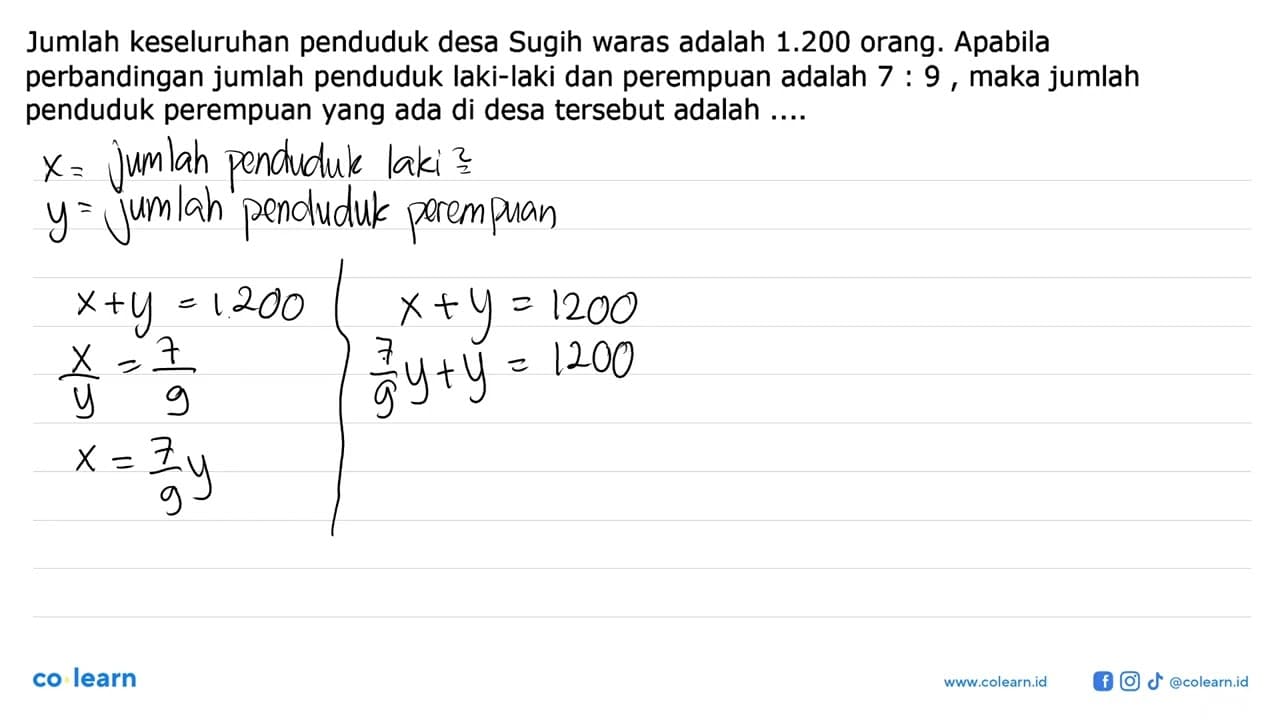 Jumlah keseluruhan penduduk desa Sugih waras adalah 1.200 orang. Apabila
perbandingan jumlah penduduk laki-laki dan perempuan adalah 7 : 9 , maka jumlah
penduduk perempuan yang ada di desa tersebut adalah ....
x = jumlah penduduk laki²
y = jumlah penduduk perempuan
x + y = 1.200
x/y = 7/9
x = 7/9 y
x + y = 1200
7/9 y + y = 1200
co learn
www.colearn.id @colearn.id